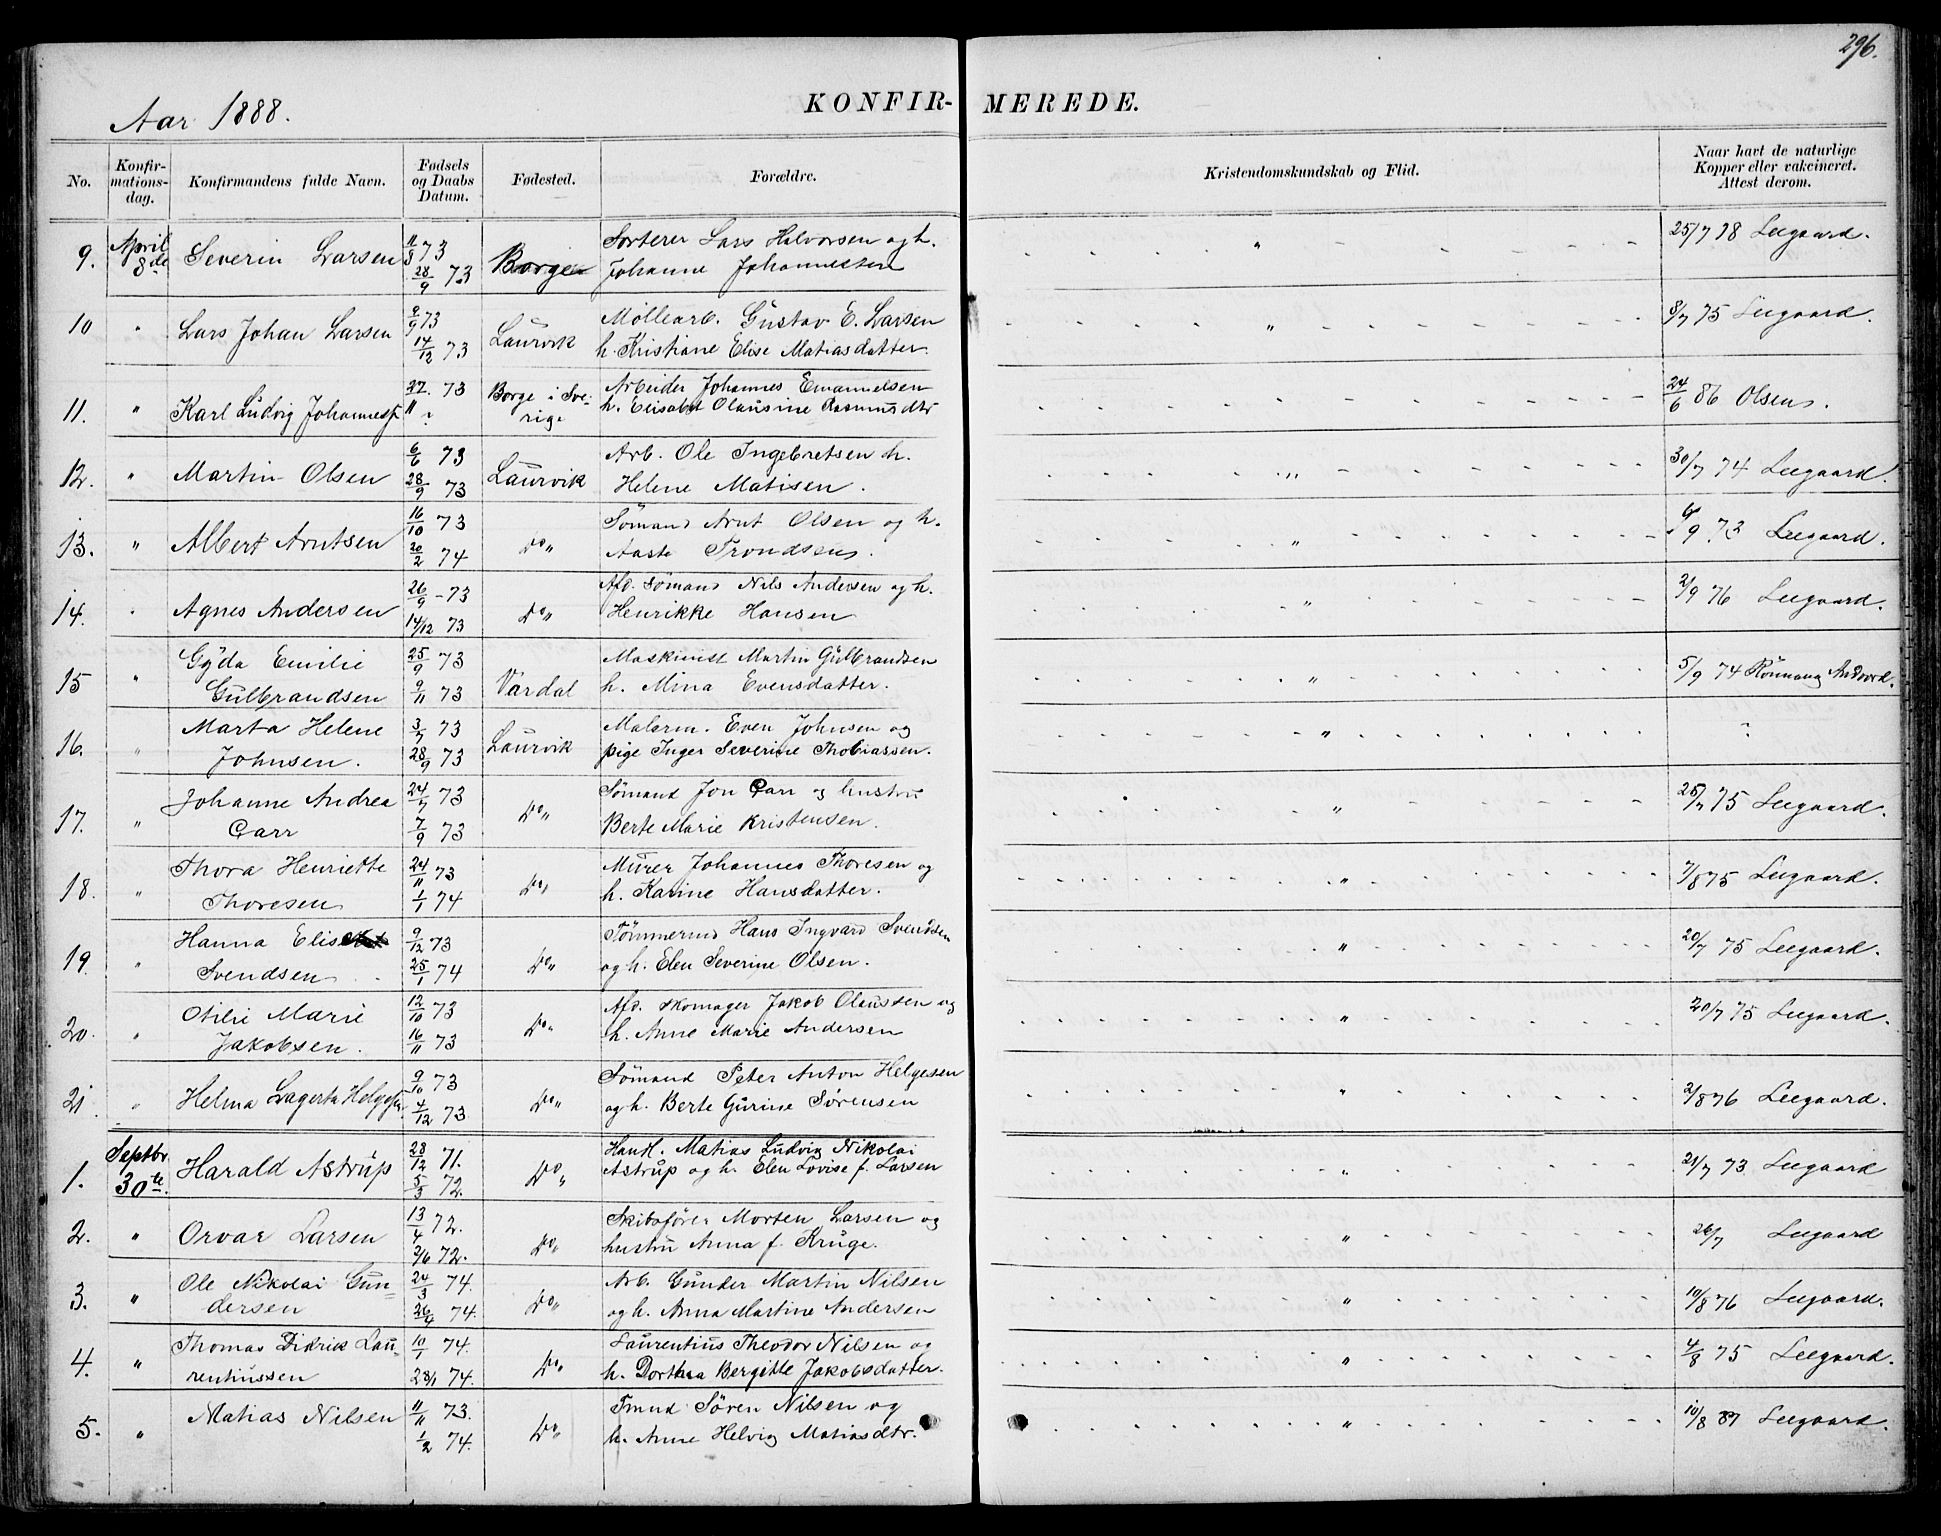 296.
Aar 1888.
KONFIR- MEREDE.
No. Konfir-mations-dag. Konfirmandens fulde Navn. Fødsels og Daabs Datum. Fødested. Forældre. Kristendomskundskab og Flid. Naar havt de naturlige Kopper eller vakcineret. Attest derom.
9. April 8de Severin Larsen 11/8 73 Borge Sorterer Lars Halvorsen og h. " 25/7 78 Leegaard.
28/9 73 Johanne Johannesen
10 " Lars Johan Larsen 9/9 73 Laurvik Møllearb. Gustav E. Larsen " 8/7 75 Leegaard.
14/12 73 h. Kristiane Elise Matiasdatter.
11. " Karl Ludvig Johannesf. 27/11 73 Borge i Sve- Arbeider Johannes Emanuelsen 24/6 86 Olsen.
? rige h. Elisabet Olausine Rasmusdtr
12. " Martin Olsen 6/6 73 Laurvik Arb. Ole Ingebretsen h. " 30/7 74 Leegaard.
28/9 73 Helene Matisen.
13. " Albert Arntsen 16/10 73 Do " Sømand Arnt Olsen og h. " 6/9 73 Leegaard.
20/2 74 Aaste Trondsen.
14. " Agnes Andersen 26/9 - 73 Do " Afd. Sømand Nils Andersen og h. " 2/9 76 Leegaard.
14/12 73 Henrikke Hansen
15 " Gyda Emilie 25/9 73 Vardal Maskinist Martin Gulbrandsen " 5/9 74 Rønnaug
Gulbrandsen 9/11 73 h. Mina Evensdatter.
16. " Marta Helene 3/7 73 Laurvik Malerm. Even Johnsen og " "
Johnsen. 28/9 73 pige Inger Severine Thobiassen.
17. " Johanne Andrea 24/7 73 Do " Sømand Jon Carr og hustru " 25/7 75 Leegaard.
Carr 7/9 73 Berte Marie Kristensen.
18. " Thora Henriette 24/11 73 Do " Murer Johannes Thoresen og " 7/8 75 Leegaard.
Thoresen 1/1 74 h. Karine Hansdatter.
19. " Hanna Elise 9/12 73 Do " Tømmermd Hans Ingvard Svendsen " 20/7 75 Leegaard.
Svendsen 25/1 74 og h. Elen Severine Olsen.
20. " Otilie Marie 12/10 73 Do " Afd. Skomager Jakob Olaussen og " 20/7 75 Leegaard.
Jakobsen. 16/11 73 h. Anne Marie Andersen
21. " Helma Lagerta Helgesen 9/10 73 Do " Sømand Peter Anton Helgesen " 2/8 76 Leegaard.
4/12 73 og h. Berte Gurine Sørensen
1. Septbr. 30te. Harald Astrup 28/12 71. Do " Handl. Matias Ludvig Nikolai " 21/7 73. Leegaard
5/3 72. Astrup og h. Elen Lovise f. Larsen
2. " Orvar Larsen 13/4 72. Do " Skibsfører Morten Larsen og " 26/7 Leegaard
2/6 72. hustru Anna f. Kruge.
3. " Ole Nikolai Gun- 24/3 74. Do " Arb. Gunder Martin Nilsen " 10/8 76 Leegaard.
dersen 26/4 74. og h. Anna Martine Andersen
4. " Thomas Didrik Lau- 10/1 74. Do " Laurentius Theodor Nilsen og " 4/8 75 Leegaard.
rentiussen 23/1 74. h. Dorthea Bergitte Jakobsdatter.
5. " Matias Nilsen 11/11 73. Do " Tmmd Søren Nilsen og " 10/8 87 Leegaard.
1/2 74. h. Anne Helvig Matiasdtr.